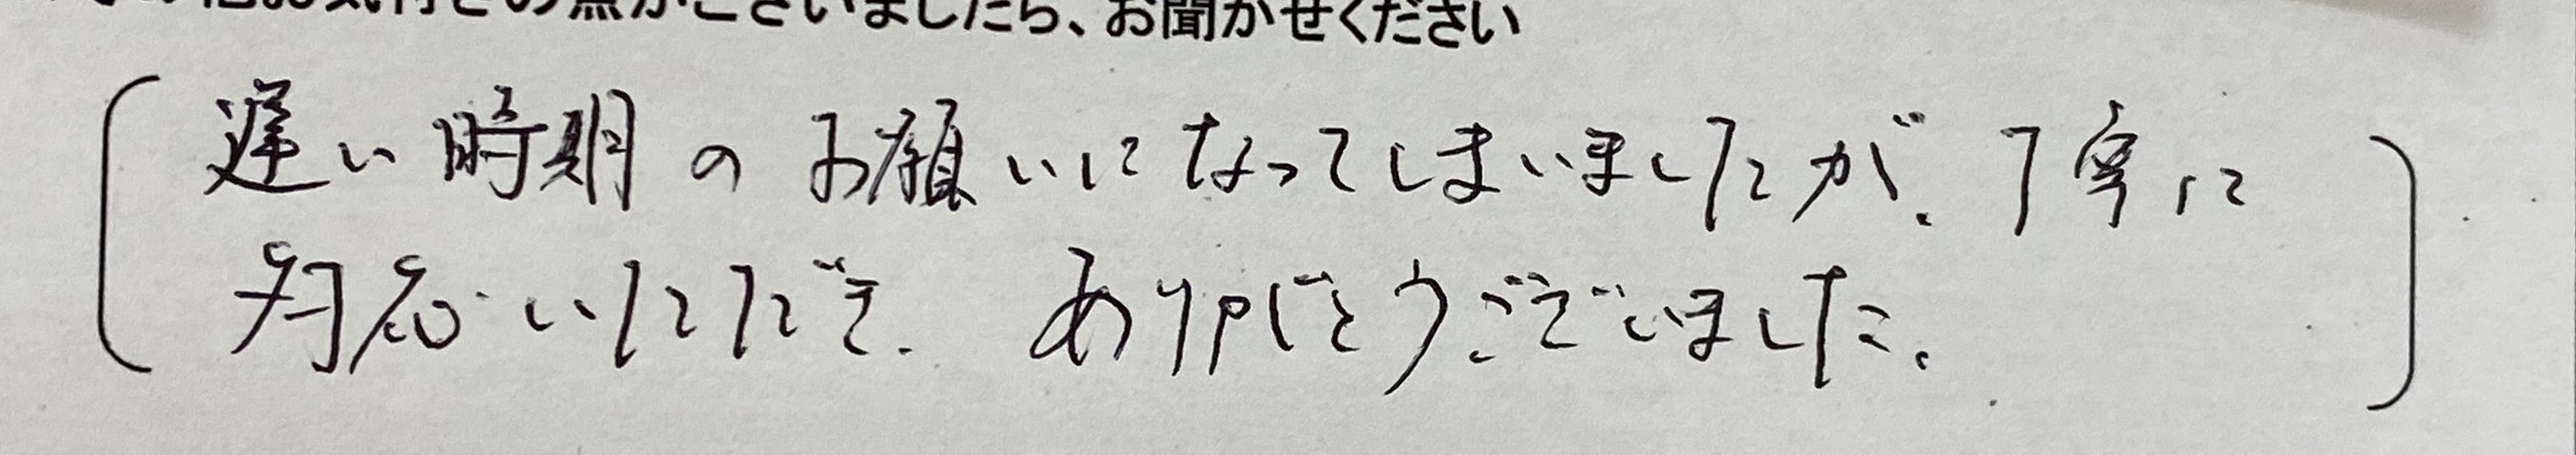 その他お気付きの点がございましたら、お聞かせください
遅い時期のお願いになってしまいましたが、丁寧に
対応いただき、ありがとうございました。